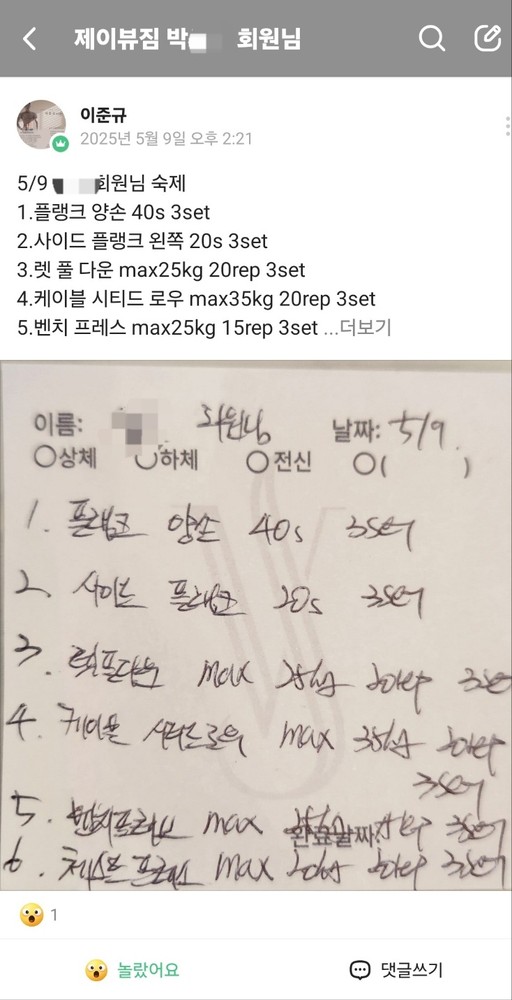 제이뷰짐 박 회원님
이준규
2025년 5월 9일 오후 2:21
5/9 회원님 숙제
1.플랭크 양손 40s 3set
2.사이드 플랭크 왼쪽 20s 3set
3.렛 풀 다운 max25kg 20rep 3set
4.케이블 시티드 로우 max35kg 20rep 3set
5.벤치 프레스 max25kg 15rep 3set ...더보기
이름: 회원님 날짜: 5/9.
상체 하체 전신 ( )
1. 플랭크 양손 40s 3set
2. 사이드 플랭크 20s 3set
3. 렛풀다운 max 25kg 20rep 3se
4. 케이블 시티드로우 max 35kg 20rep
3set
5. 벤치프레스 max 완료날짜: rep 3set
6. 체스트 프레스 max 20kg 20rep 3set
1
놀랐어요
댓글쓰기